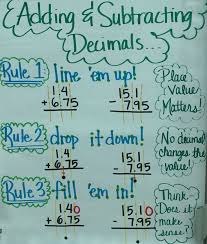 Adding & Subtracting
Decimals...
Rule 1 line 'em up!
1.4
+ 6.75
15.1
- 7.95
Place
Value
Matters!
Rule 2 drop it down!
1.4
+ 6.75
15.1
- 7.95
No decimal
changes the
value!
Rule 3 fill 'em in!
1.40
+ 6.75
15.10
- 7.95
Think-
Does it
make
sense?